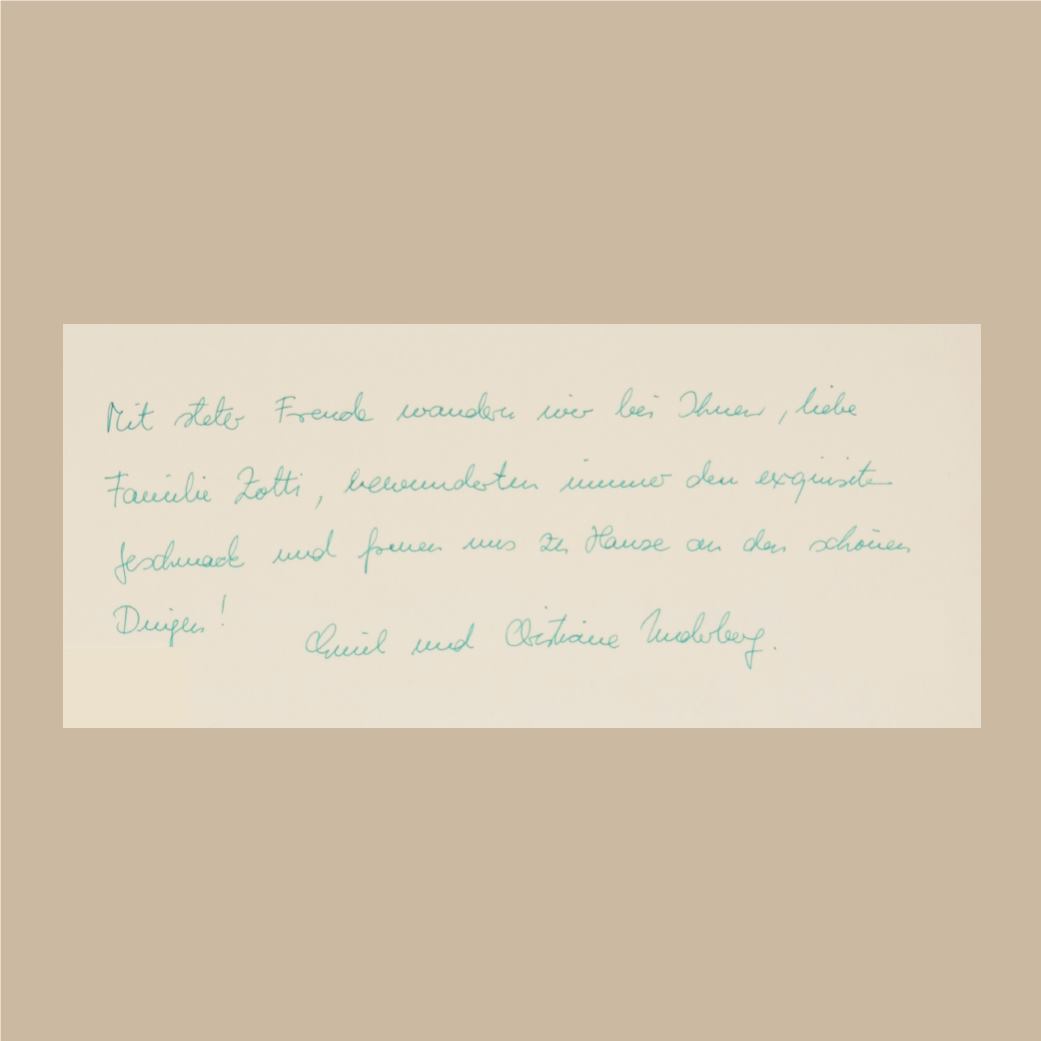 Mit steter Freude wandern wir bei Ihnen, liebe
Familie Zotti, bewunderten immer den exquisiten
Geschmack und freuen uns zu Hause an den schönen
Dingen!
Emil und Christiane Underberg.